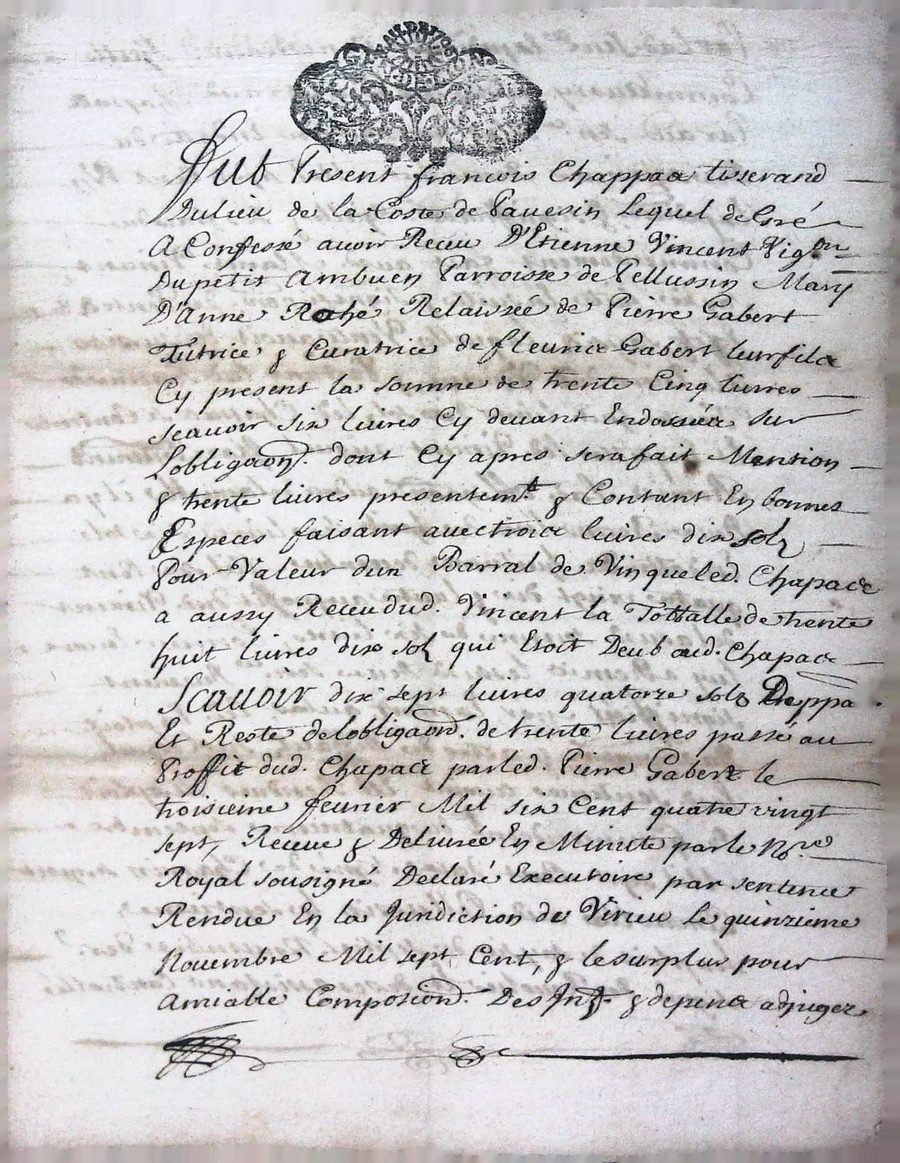 Fut Present françois Chappaa tiserand
Dulieu de la Coste de Pauesin Lequel de Gré
A Confessé auoir Receu D'Etienne Vincent Vig.on
Du petit Ambuen Parroisse de Pellussin Mary
D'Anne Rohé Relaissée de Pierre Gabert
Tutrice & Curatrice de fleurie Gabert leur fila
Cy present la somme de trente Cinq liures
scauoir six liures Cy deuant Endosséa sur
Lobligaon. dont Cy apres sera fait Mention
& trente liures presentem.t & Contant En bonnes
Especes faisant auectroia liures dix solz
Pour Valeur dun Barral de Vin queled. Chapace
a aussy Receu dud. Vincent la Tottalle de trente
huit liures dix solz qui Etoit Deub aud. Chapace
Scauoir dix sept liures quatorze solz De ppa.
Et Reste de lobligaon. de trente liures passé au
Proffit dud. Chapace parled. Pierre Gabert le
troisieme feurier Mil six Cent quatre vingt
sept, Receue & Deliurée En Minute parle No.re
Royal sousigné Declaré Executoire par sentence
Rendue En la Juridiction de Virieu le quinzieme
Nouembre Mil sept Cent, & lesurplus pour
amiable Composion. Des Jnt. & depena adjugez